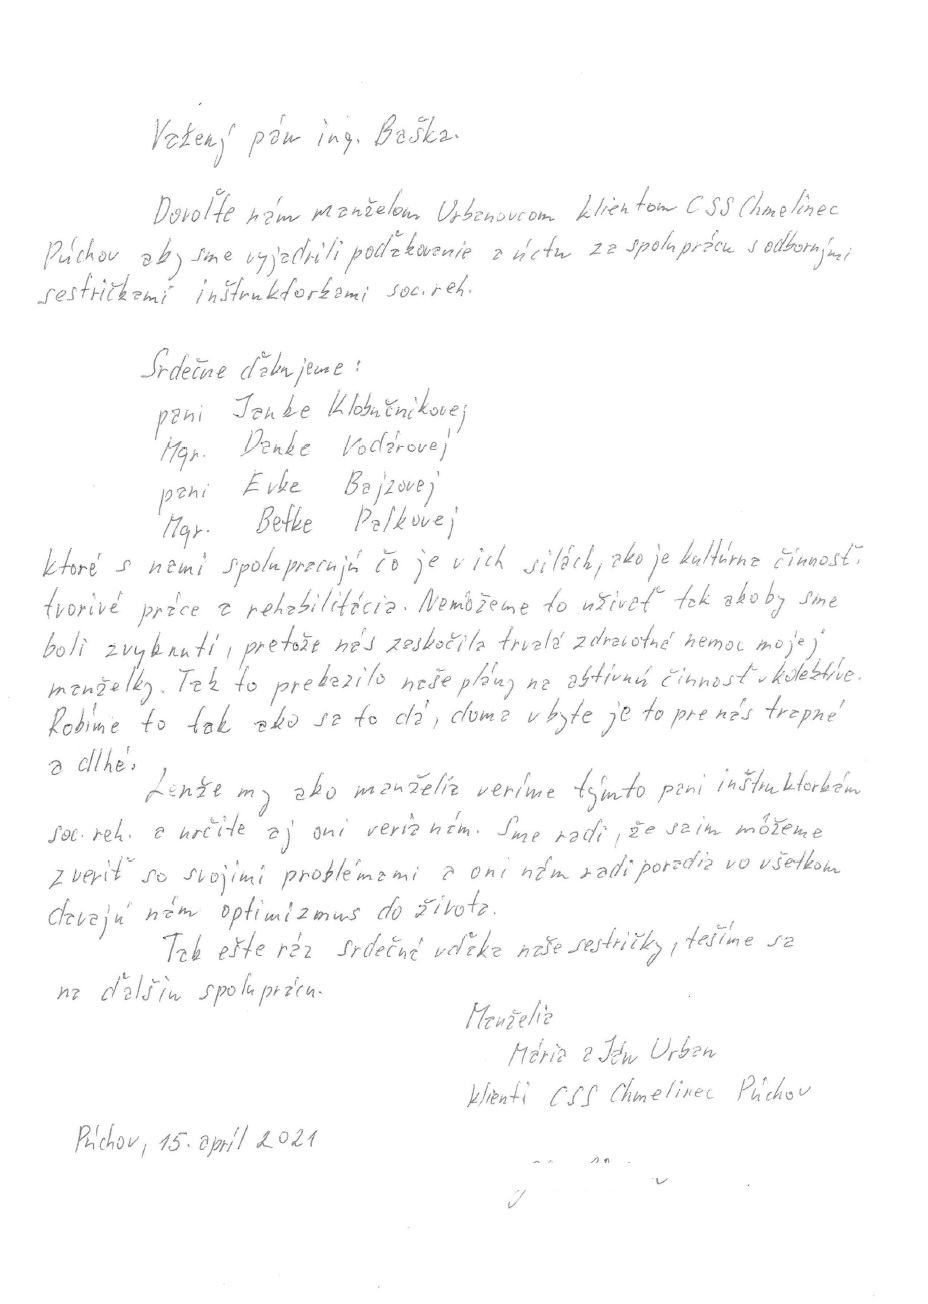 Vážený pán ing. Baška.
Dovoľte nám manželom Urbanovcom klientom CSS Chmelinec
Púchov aby sme vyjadrili poďakovanie a úctu za spoluprácu s odbornými
sestričkami inštruktorkami soc. reh.
Srdečne ďakujeme:
pani Janke Klobučníkovej
Mgr. Danke Vodárovej
pani Evke Bajzovej
Mgr. Betke Paľkovej
ktoré s nami spolupracujú čo je v ich silách, ako je kultúrna činnosť.
tvorivé práce a rehabilitácia. Nemôžeme to užívať tak ako by sme
boli zvyknutí, pretože nás zaskočila trvalá zdravotná nemoc mojej
manželky. Tak to prekazilo naše plány na aktívnú činnosť v kolektíve.
Robíme to tak ako sa to dá, doma v byte je to pre nás trapné
a dlhé.
Lenže my ako manželia veríme týmto pani inštruktorkám
soc. reh. a určite aj oni veria nám. Sme radi, že sa im môžeme
zveriť so svojimi problémami a oni nám radi poradia vo všetkom
davajú nám optimizmus do života.
Tak ešte ráz srdečná vďaka naše sestričky, tešíme sa
na ďalšiu spoluprácu.
Manželia
Mária a Ján Urban
klienti CSS Chmelinec Púchov
Púchov, 15. apríl 2021